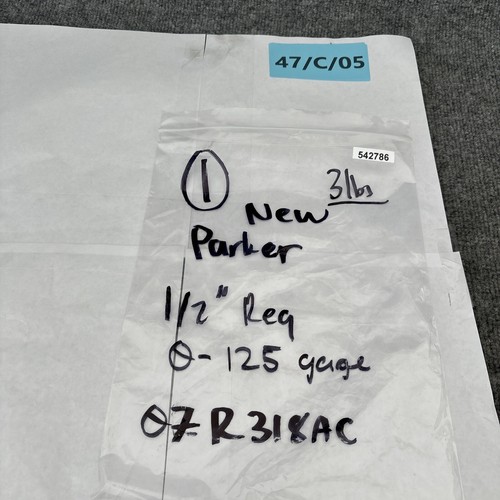 47/C/05
542786
1 3lbs
New
Parker
1/2" Reg
0-125 gage
07R318AC